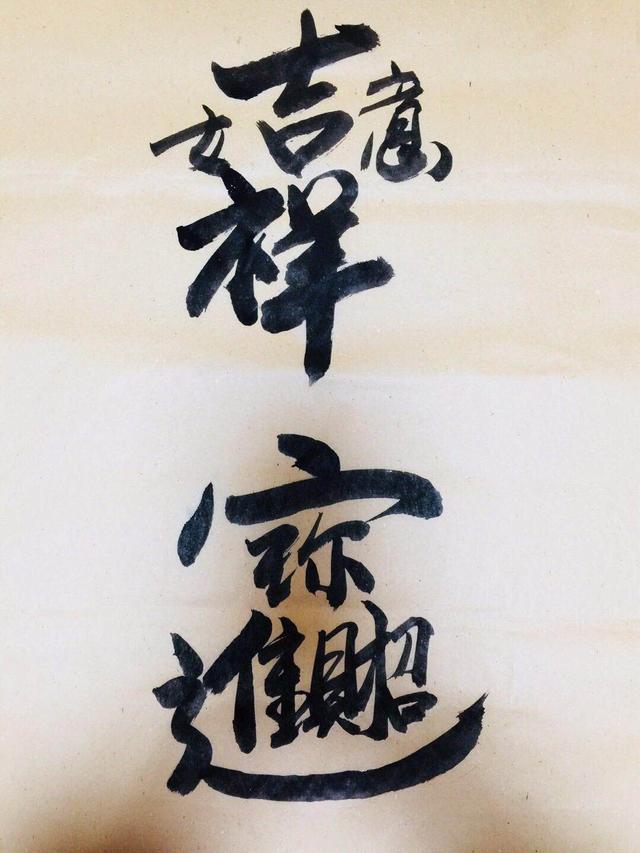 吉祥如意
招財進寶